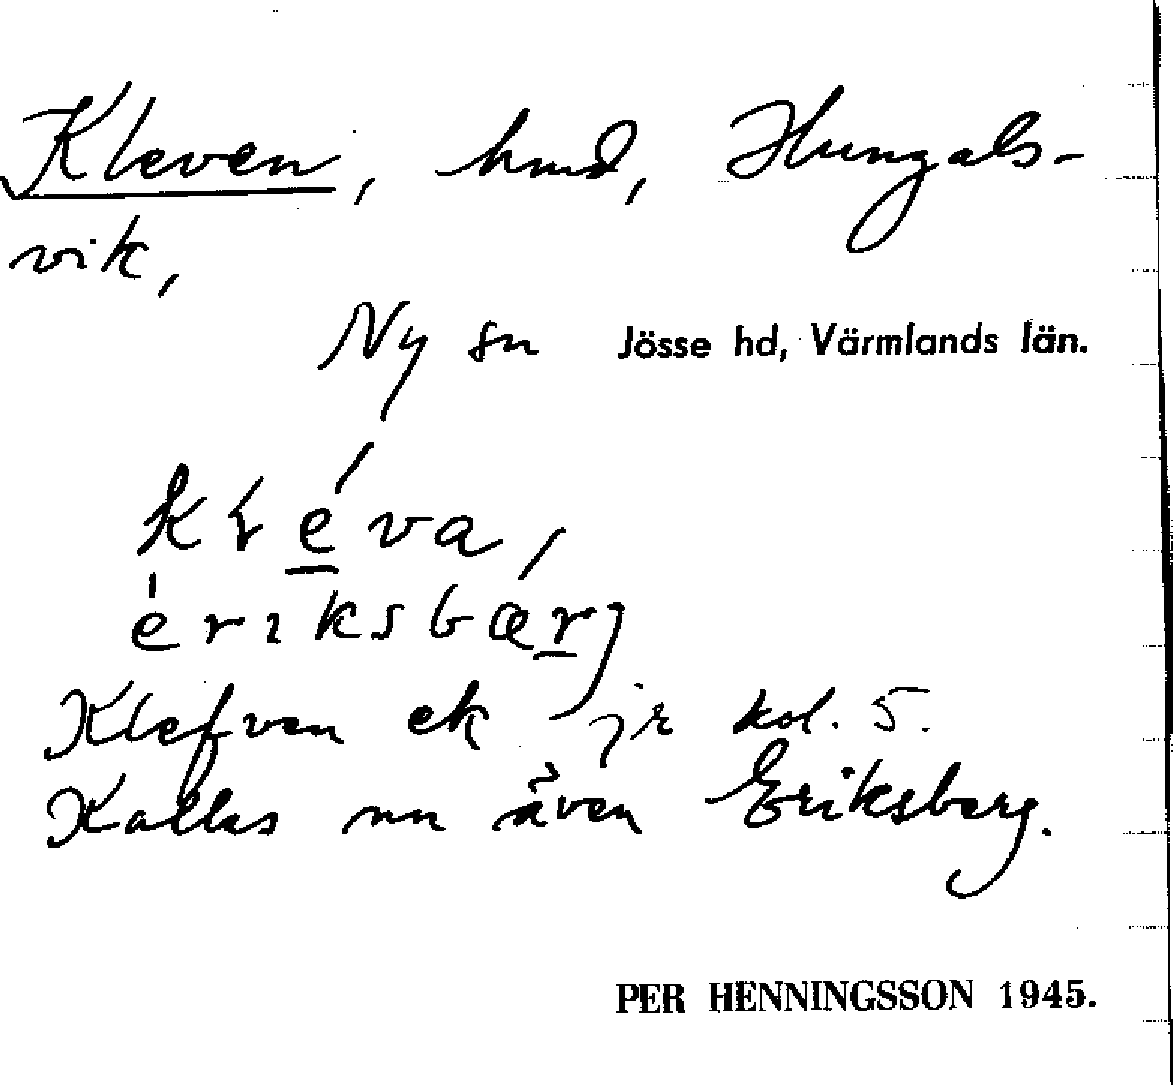 Kleven, hmd, Hungals-
vik,
Ny sn Jösse hd, Värmlands län.
kléva,
ériksbærj
Klefven ek jr kol. 5.
Kallas nu även Eriksberg.
PER HENNINGSSON 1945.